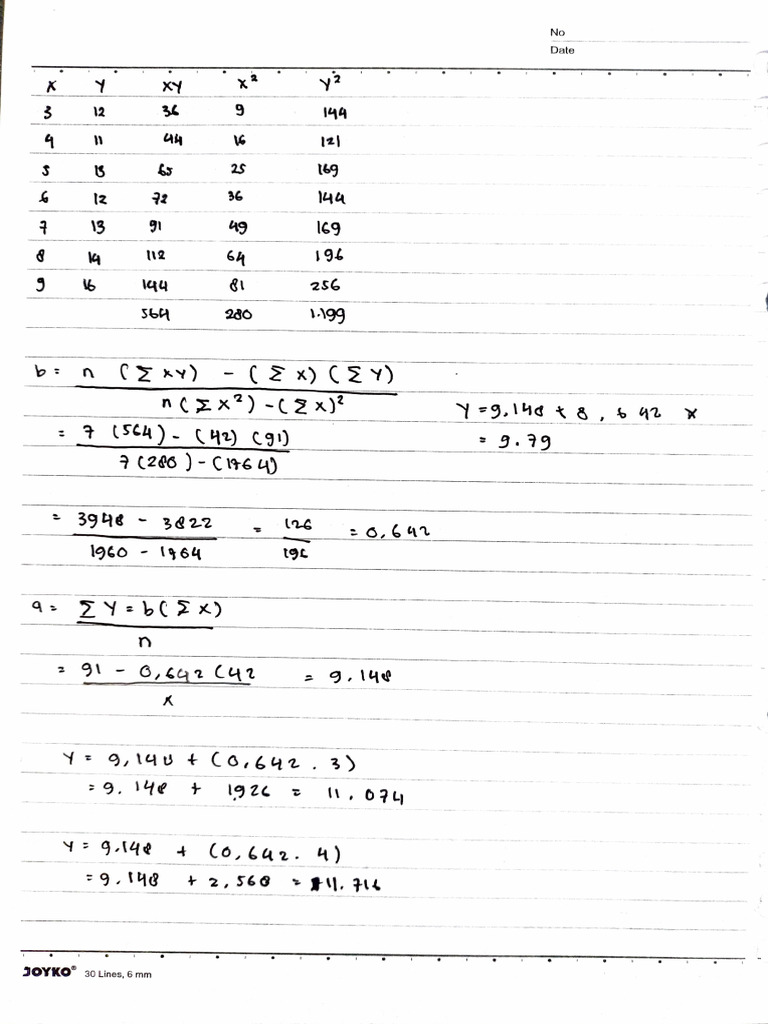 No
Date
X Y XY X² Y²
3 12 36 9 144
4 11 44 16 121
5 13 65 25 169
6 12 72 36 144
7 13 91 49 169
8 14 112 64 196
9 16 144 81 256
564 280 1.199
b = n (Σ XY) - (Σ X) (Σ Y)
n (Σ X²) - (Σ X)²
Y = 9,148 + 0,642 x
= 7 (564) - (42) (91)
7 (280) - (1764)
= 9.79
= 3948 - 3822 = 126 = 0,642
1960 - 1764 196
a = Σ Y = b (Σ X)
n
= 91 - 0,642 (42 = 9.148
x
Y = 9,148 + (0,642 . 3)
= 9.148 + 1,926 = 11.074
Y = 9.148 + (0,642. 4)
= 9.148 + 2,568 = 11.716
JOYKO® 30 Lines, 6 mm